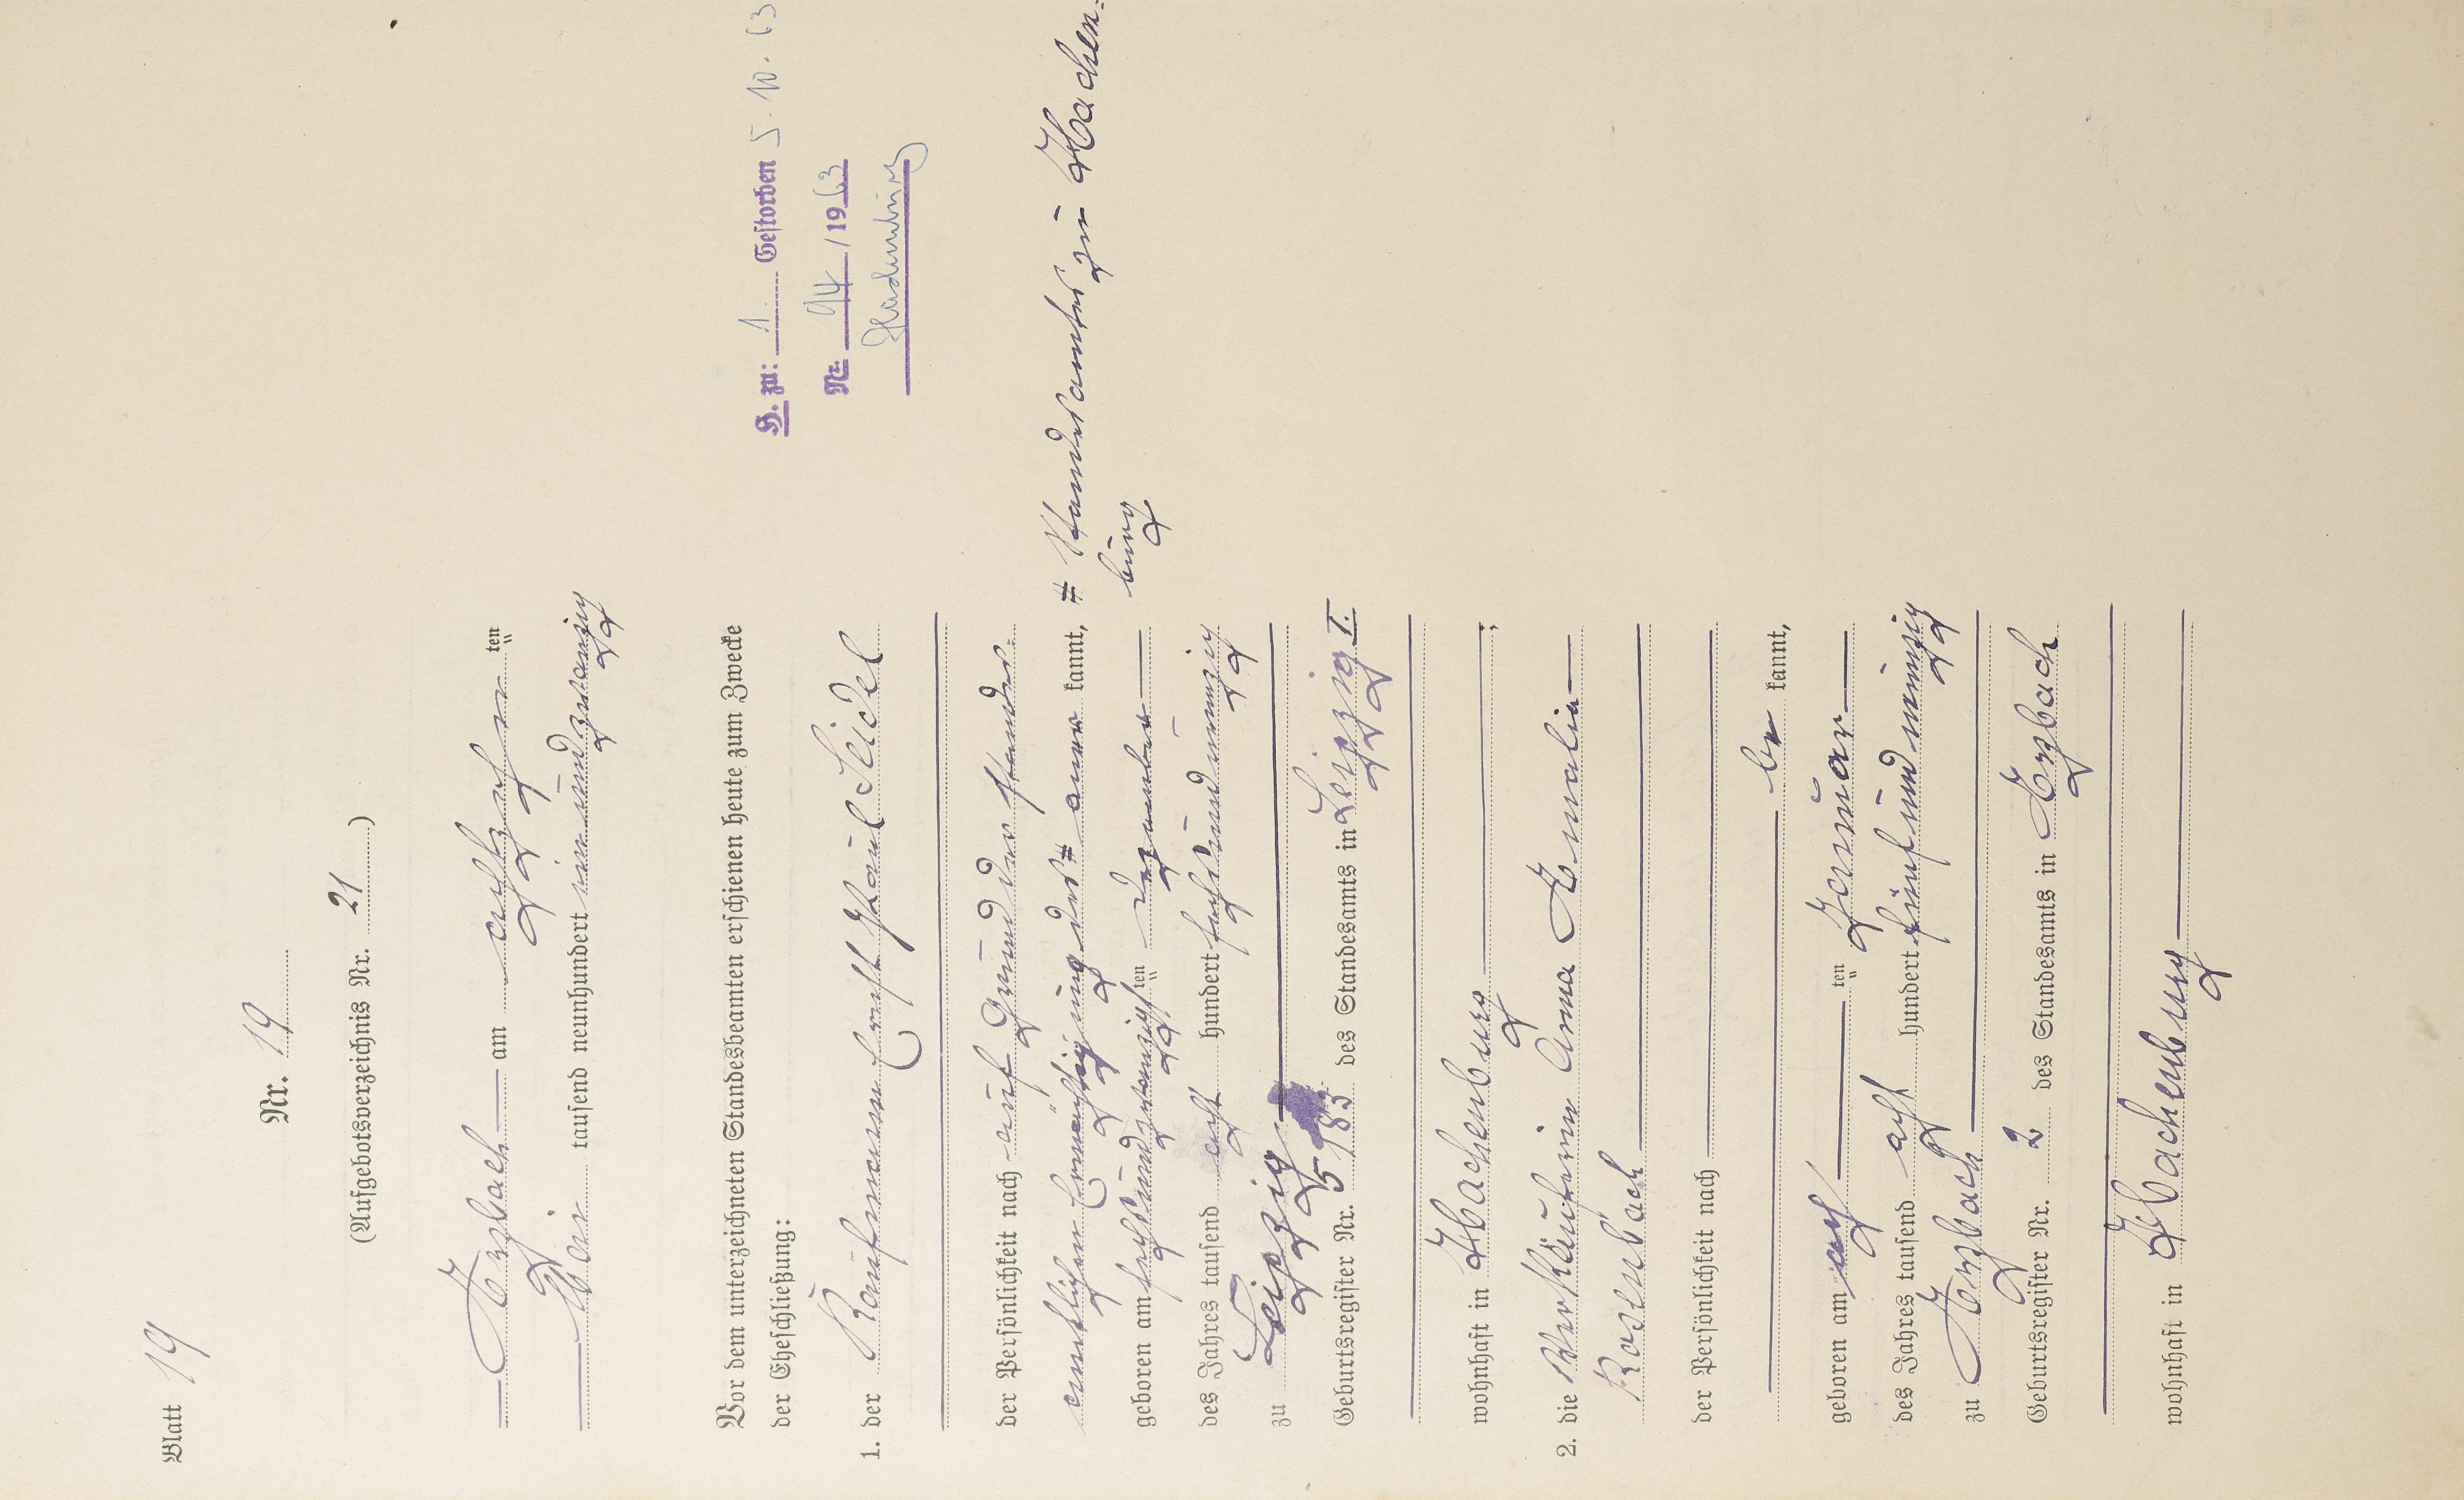 Blatt 19
Nr. 19
(Aufgebotsverzeichnis Nr. 21)
Atzbach am achtzehnten
Mai tausend neunhundert einundzwanzig
Vor dem unterzeichneten Standesbeamten erschienen heute zum Zwecke
der Eheschließung:
1. der Kaufmann Ernst Paul Seidel
der Persönlichkeit nach auf Grund der standes-
amtlichen Ermächtigung des # aner kannt,
geboren am sechsundzwanzigsten Dezember
des Jahres tausend acht hundert sechsundneunzig
zu Leipzig
Geburtsregister Nr. 5183 des Standesamts in Leipzig I.
wohnhaft in Hachenburg;
2. die Verkäuferin Anna Amalie
Rosenbach
der Persönlichkeit nach
be kannt,
geboren am acht ten Januar
des Jahres tausend acht hundert fünfundneunzig
zu Atzbach
Geburtsregister Nr. 2 des Standesamts in Atzbach
wohnhaft in Hachenburg
H. zu: 1 Gestorben 5.10.63
Nr. 94/1963
Hachenburg
# Standesamtes zu Hachen-
burg